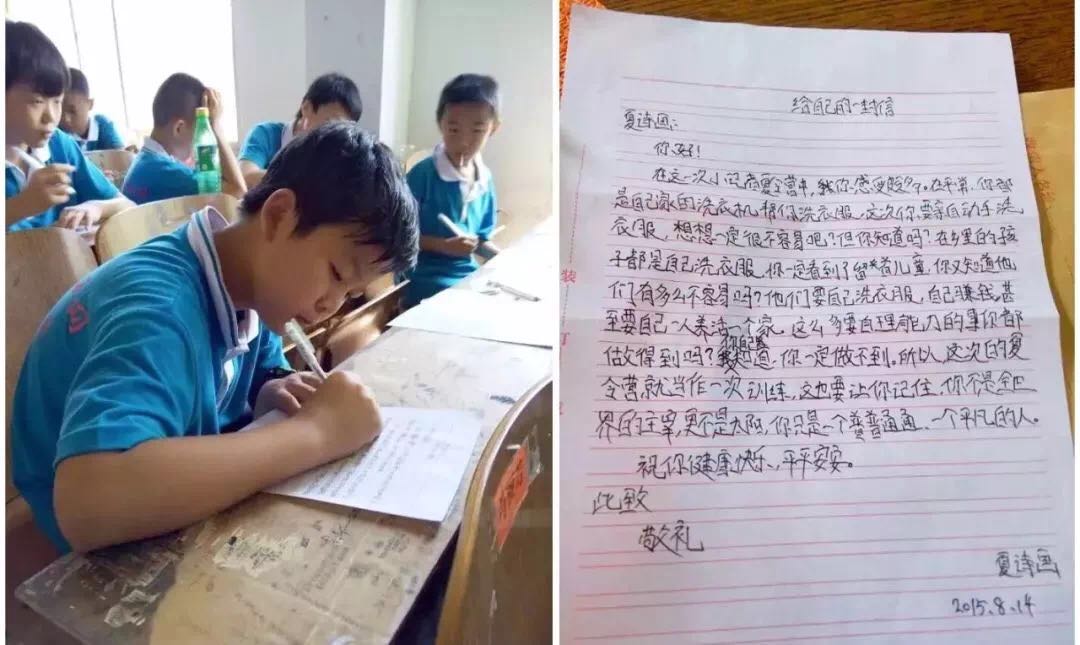 给自己的一封信
夏诗画：
你好！
在这一次小记者夏令营中，我你感受超多了。在平常，你都
是自己家的洗衣机帮你洗衣服，这次你要亲自动手洗
衣服，想想一定很不容易吧？但你知道吗？在乡里的孩
子都是自己洗衣服，你一定看到了留守儿童，你又知道他
们有多么不容易吗？他们要自己洗衣服，自己赚钱，甚
至要自己一人养活一个家，这么多要自理能力的事你都
做得到吗？你自己知道，你一定做不到。所以，这次的夏
令营就当作一次训练，这也要让你记住，你不是全世
界的主宰，更不是太阳，你只是一个普普通通、一个平凡的人。
祝你健康快乐，平平安安。
此致
敬礼
夏诗画
2015.8.14
装
订